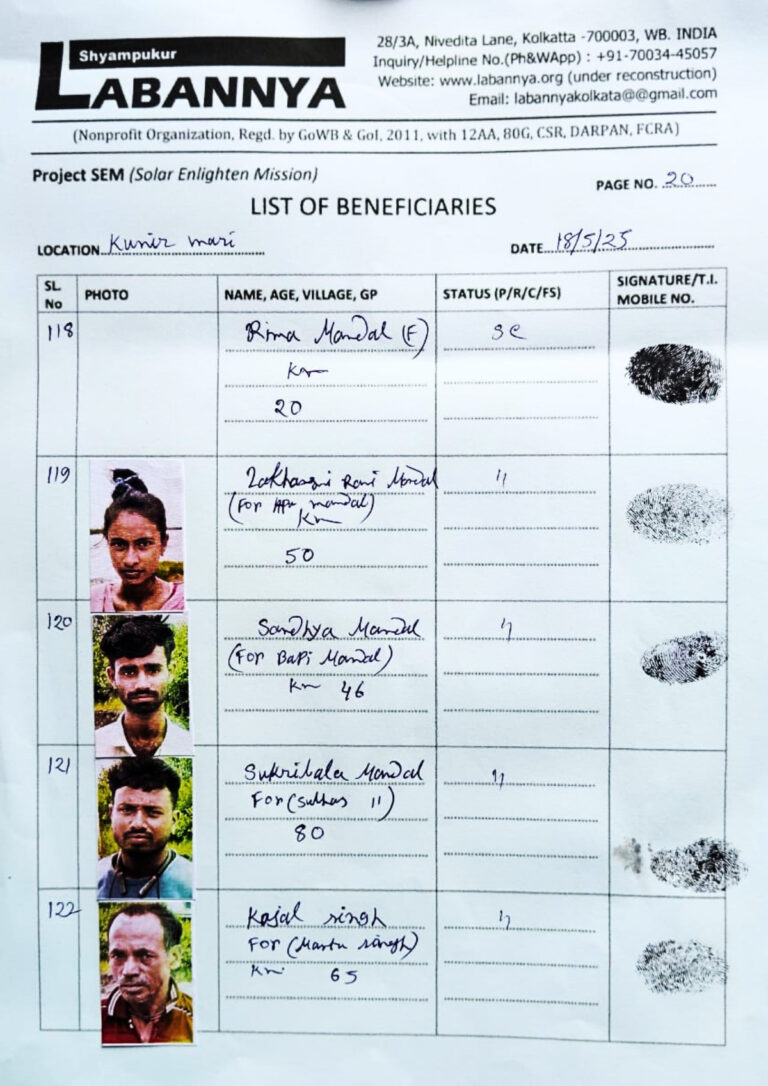 Shyampukur
LABANNYA
28/3A, Nivedita Lane, Kolkatta -700003, WB. INDIA
Inquiry/Helpline No.(Ph&WApp) : +91-70034-45057
Website: www.labannya.org (under reconstruction)
Email: labannyakolkata@@gmail.com
(Nonprofit Organization, Regd. by GoWB & GoI, 2011, with 12AA, 80G, CSR, DARPAN, FCRA)
Project SEM (Solar Enlighten Mission)
PAGE NO. 20
LIST OF BENEFICIARIES
LOCATION Kumir mari
DATE 18/5/25
SL. No PHOTO NAME, AGE, VILLAGE, GP STATUS (P/R/C/FS) SIGNATURE/T.I. MOBILE NO.
118 Rima Mandal (F) SC
Km
20
119 Rani Mandal "
(For mandal)
Km
50
120 Sandhya Mandal "
(For Bapi Mandal)
Km 46
121 Sukribala Mandal "
For (Subhas ")
80
122 Kajal singh "
For ( singh)
Km 65